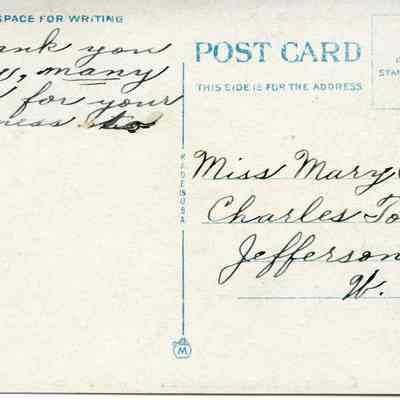 SPACE FOR WRITING
ank you
many
for your
ness to
POST CARD
THIS SIDE IS FOR THE ADDRESS
STAN
MADE IN USA
Miss Mary
Charles To
Jefferson
W.
M